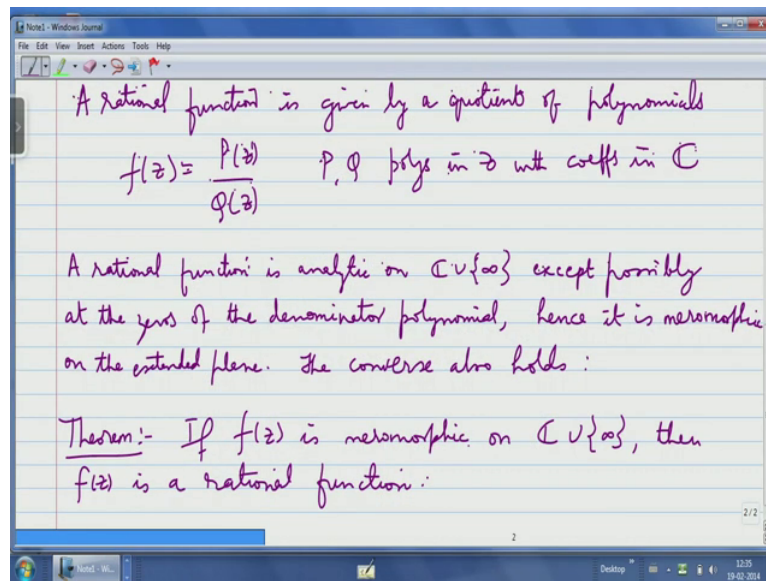 Note1 - Windows Journal
File Edit View Insert Actions Tools Help
A rational function is given by a quotient of polynomials
f(z) = P(z)/Q(z) P, Q polys in z with coeffs in ℂ
A rational function is analytic on ℂ ∪ {∞} except possibly
at the zeros of the denominator polynomial, hence it is meromorphic
on the extended plane. The converse also holds :
Theorem:- If f(z) is meromorphic on ℂ ∪ {∞}, then
f(z) is a rational function.
2/2
2
Note1 - Wi...
Desktop
12:35
19-02-2014